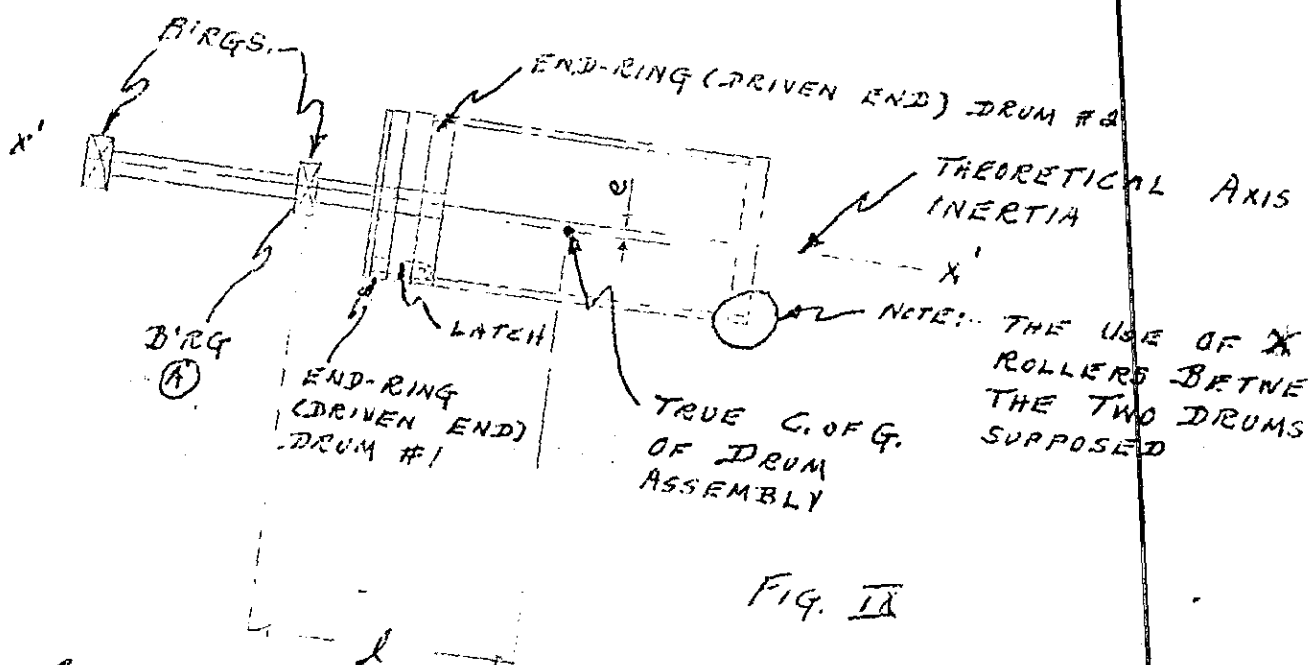 B'RGS.
END-RING (DRIVEN END) DRUM #2
X'
e
THEORETICAL AXIS
INERTIA
X'
LATCH
B'RG
A
END-RING
(DRIVEN END)
DRUM #1
TRUE C. OF G.
OF DRUM
ASSEMBLY
NOTE:- THE USE OF X
ROLLERS BETWE
THE TWO DRUMS
SUPPOSED
FIG. IX
l